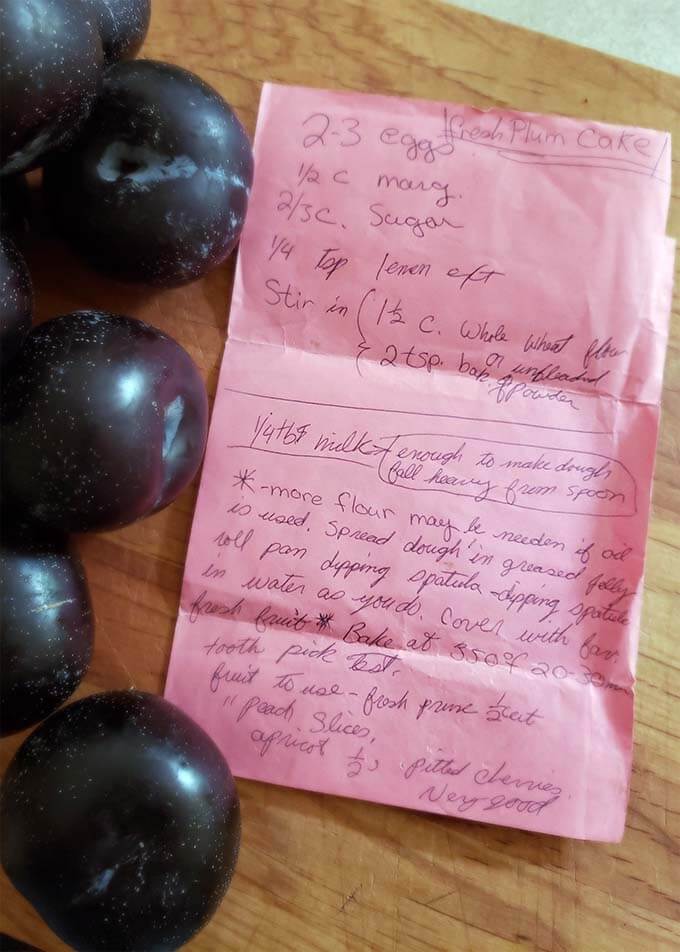 Fresh Plum Cake
2-3 eggs
1/2 c marg.
2/3 c. Sugar
1/4 tsp lemon ext
Stir in ( 1 1/2 c. Whole wheat flour
or unbleached
{ 2 tsp. bak powder
1/4 tb milk enough to make dough
fall heavy from spoon
* - more flour may be needen if oil
is used. Spread dough in greased jelly
roll pan dipping spatula - dipping spatula
in water as you do. Cover with fav.
fresh fruit * Bake at 350°F 20-30 min
tooth pick test.
fruit to use - fresh prune 1/2 cut
" peach slices,
apricot 1/2s pitted cherries.
Very good